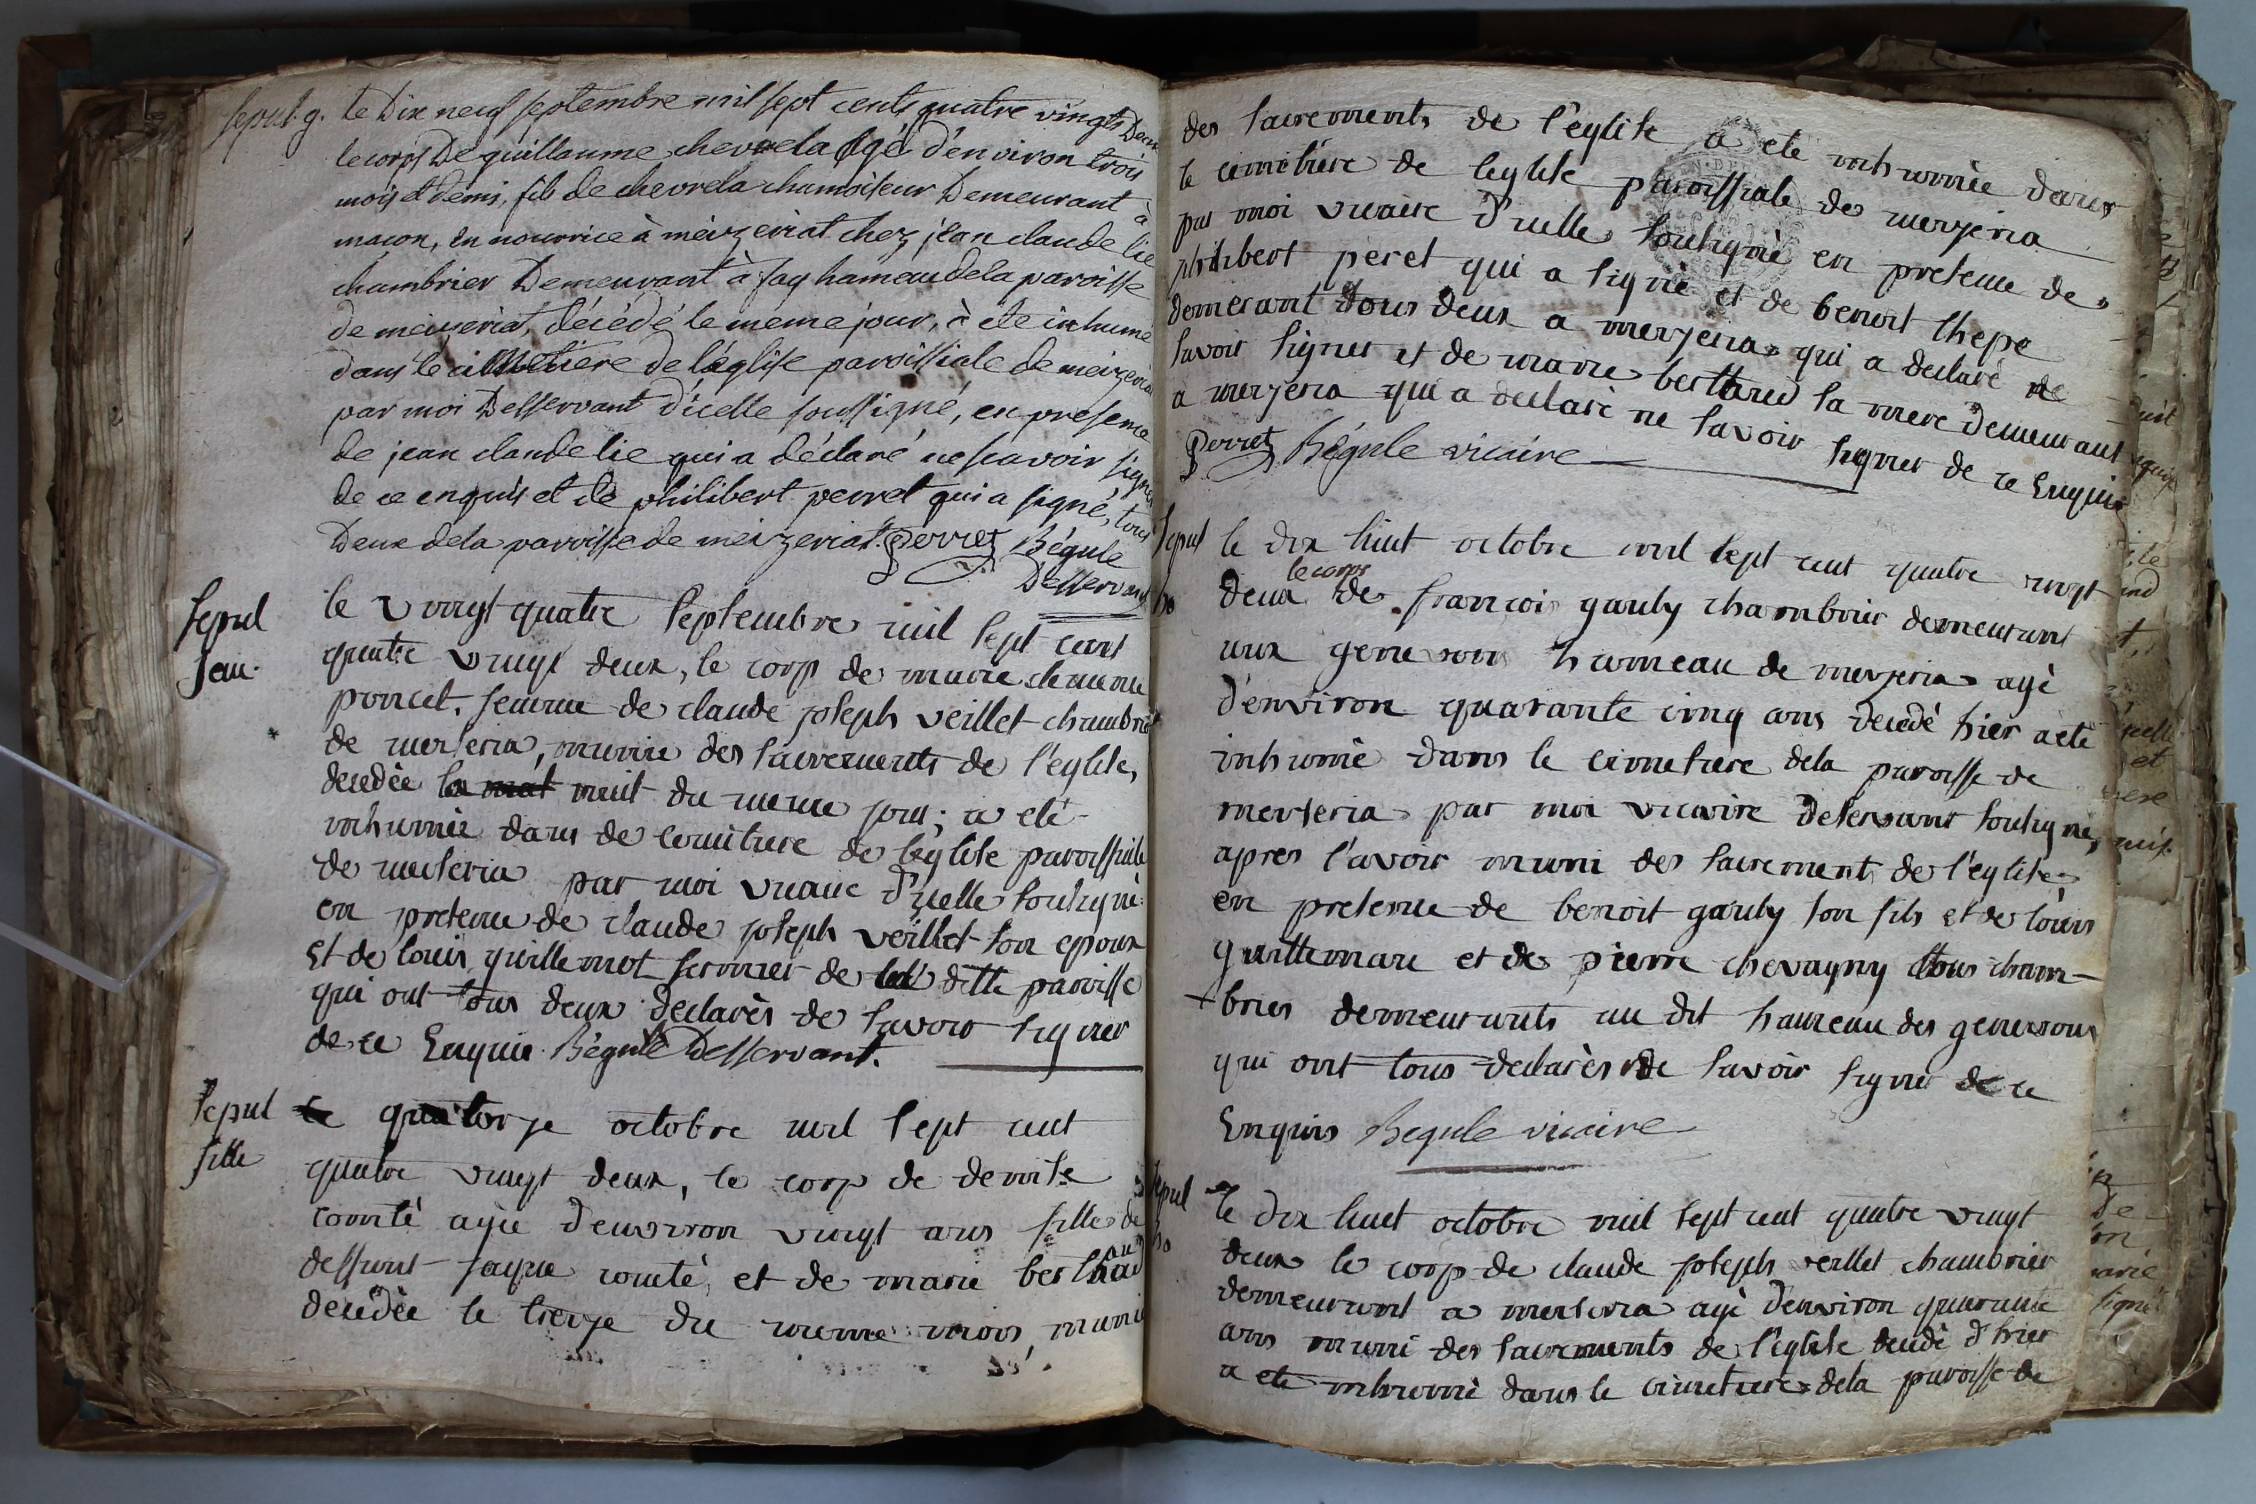 sepul. g. le Dix neuf septembre mil sept cents quatre vingts Deux
le corps De guillaume chevrela âgé d'environ trois
mois et demi, fils de chevrela chamoiseur Demeurant à
macon, en nourrice à meizeriat chez jean claude lie
chambrier Demeurant à fay hameau de la paroisse
de meizeriat, décédé le meme jour, à ete inhumé
dans le cimetiere de l'église paroissiale de meizeriat
par moi Desservant d'icelle soussigné, en presence
de jean claude lie qui a déclaré ne scavoir signer
de ce enquis et de philibert perret qui a signé, tous
Deux de la paroisse de meizeriat. Perret Bégule
Desservant
sepul le vingt quatre septembre mil sept cent
quatre vingt deux, le corp de marie
poncet, femme de claude joseph veillet chambrier
de merseria, munie des sacrements de l'eglise,
decedée la nuit du meme jour; a eté
inhumée dans de cemitiere de leglise paroissiale
de merseria par moi vicaire d'icelle souligné
en presence de claude joseph veillet son epoux
et de louis guillemot fermier de la ditte paroisse
qui ont tous deux declarès de savoir signer
de ce Enquis Bégule Desservant.
sepul le quatorze octobre mil sept cent
fille quatre vingt deux, le corp de denise
comté agée d'environ vingt ans fille de
deffunt comté, et de marie berthaud
decédèe le treize du meme mois, munie
des sacrements de l'églisse a ete inhumée dans
le cimetiere de leglise paroissiale de merzeria
par moi vicaire d'icelle souligné en presence de
philibert peret qui a signé et de benoit thepe
demerant tous deux a merzeria qui a declaré ne
savoir signer et de marie berthaud sa mere demeurant
a merzeria qui a declaré ne savoir signer de ce Enquis
Perret Bégule vicaire
sepul le dix huit octobre mil sept cent quatre vingt
le corps
ho deux de francois gauly chambrier demeurant
aux hameau de merzeria agé
d'environ quarante cinq ans decedé hier a eté
inhumé dans le cimetiere dela paroisse de
merseria par moi vicaire deservant souligné,
apres l'avoir muni des sacrement de l'église
en presence de benoit gauly son fils et de louis
guillemare et de pierre chevagny tous cham-
briers demeurants au dit hameau des
qui ont tous declarès de savoir signer de ce
Enquis Bégule vicaire
sepul le dix huit octobre mil sept cent quatre vingt
ho deux le corp de claude joseph veillet chambrier
demeurant a merseria agé d'environ quarante
ans muni des sacrements de l'église decedé d'hier
a ete inhumé dans le cimetiere dela paroisse de